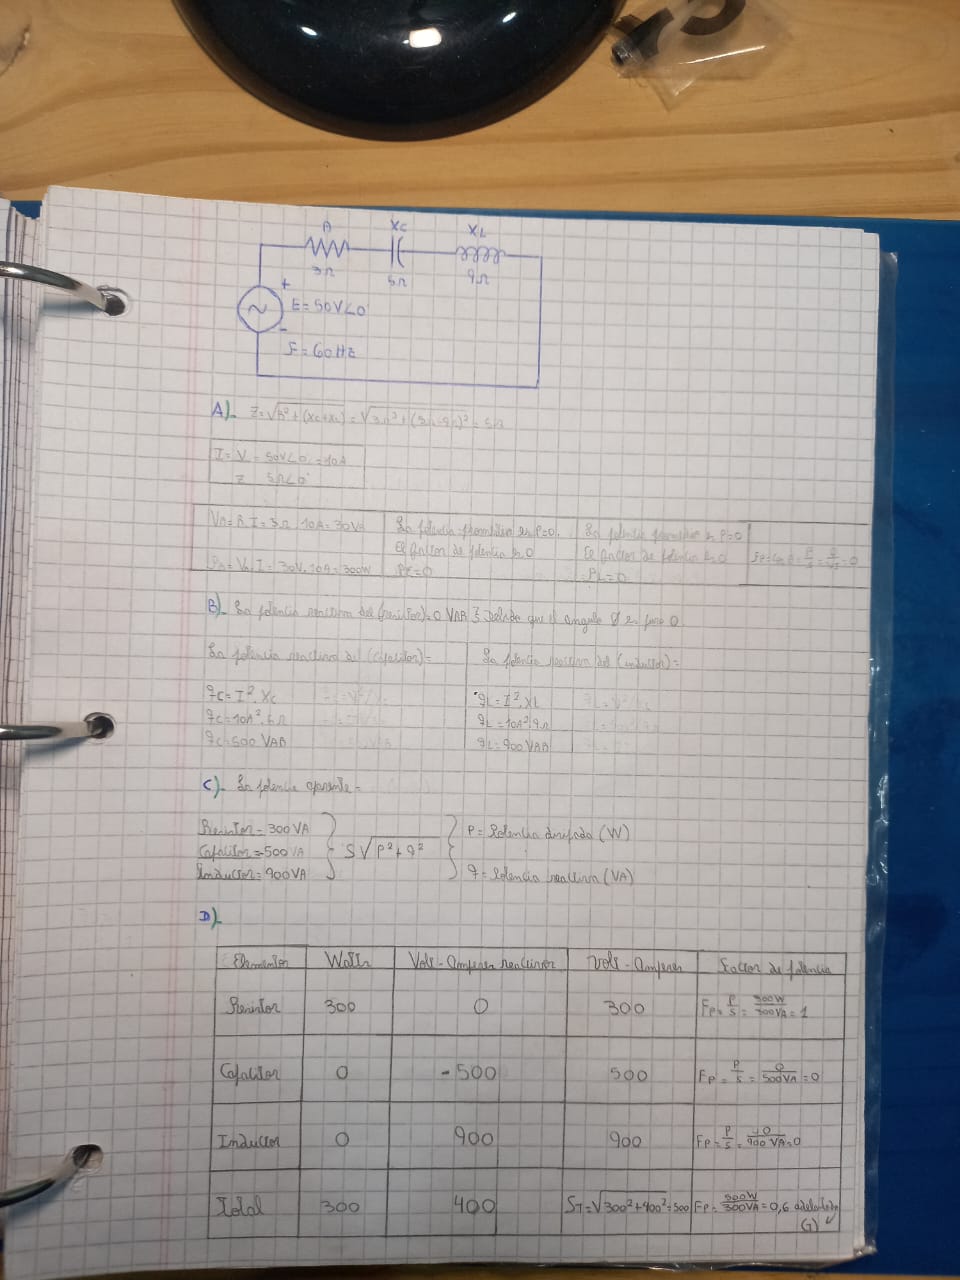 R XC XL
3Ω 5Ω 9Ω
+
E = 50V∠0
-
F = 60Hz
A)-
I = V = 50V∠0 = 10A
Z 5Ω∠0
VR = R.I = 3Ω.10A = 30V
= 30V.10A = 300W
La potencia es P=0.
El factor de potencia es 0
PC=0
La potencia es P=0
El factor de potencia es 0
PL=0
B)- La potencia reactiva del (resistor) = 0 VAR que el angulo Ø es 0.
La potencia reactiva del (capacitor) =
qc = I². Xc
qc = 10A².5Ω
qc = 500 VAR
La potencia reactiva del (inductor) =
qL = I². XL
qL = 10A².9Ω
qL = 900 VAR
C)- La potencia aparente =
Resistor = 300 VA
Capacitor = 500 VA
Inductor = 900 VA
S√P²+q²
P = Potencia disipada (W)
q = Potencia reactiva (VA)
D)-
Elementos Watts Volt-Amperes reactivos Volt-Amperes Factor de potencia
Resistor 300 0 300 Fp = P/S = 300W/300VA = 1
Capacitor 0 -500 500 Fp = P/S = 0/500VA = 0
Inductor 0 900 900 Fp = P/S = 0/900 VA = 0
Total 300 400 ST = √300²+400² = 500 Fp = /300VA = 0,6
(G)